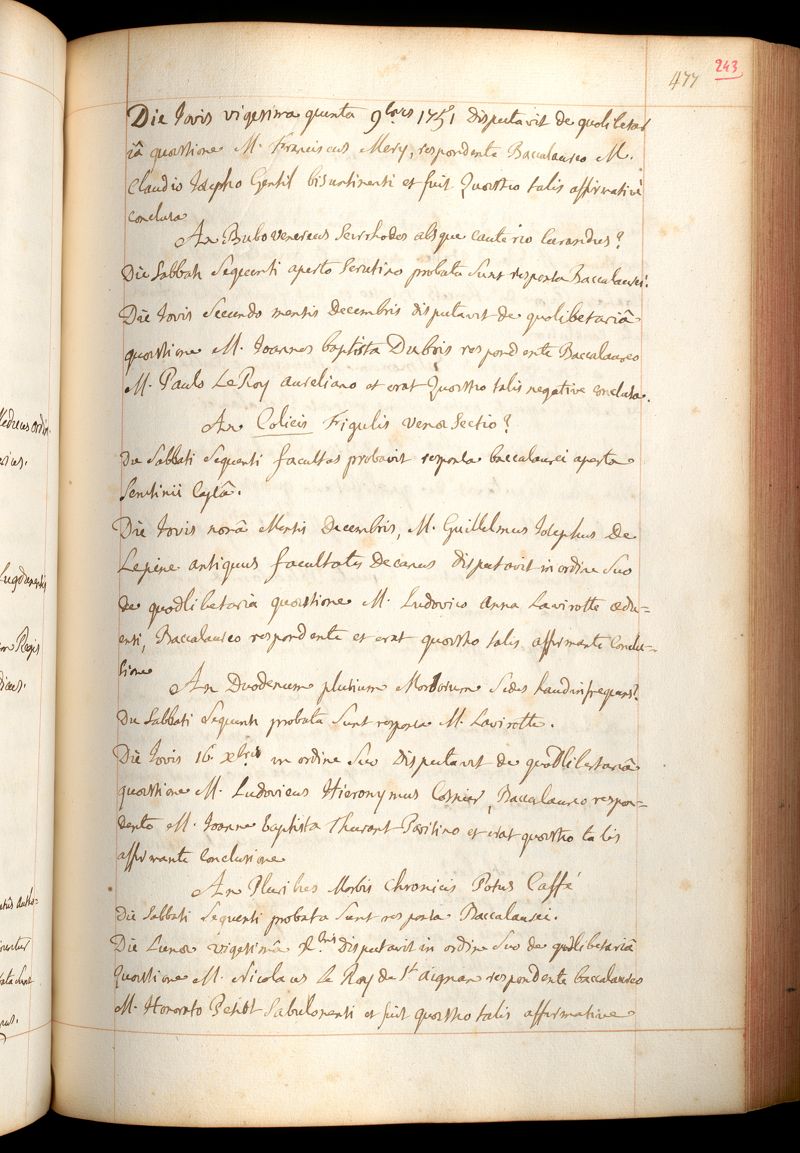 477 243
Die Jovis vigesima quinta 9bris 1751 disputavit de quolibetar
iâ quæstione M. Franciscus Mery, respondente Baccalaureo M.
Claudio Josepho Gentil bisuntinenti et fuit Quæstio talis affirmativè
conclusa
An Bubo venereus Scirrhodes absque cauterio Curandus?
Die Sabbati Sequenti aperto Scrutino probata Sunt responsa Baccalaurei.
Die Jovis Secundo mensis decembris disputavit de quolibetariâ
quæstione M. Joannes baptista Dubois respondente Baccalaureo
M. Paulo LeRoy aureliano et erat Quæstio talis negative conclusa.
An Colicis Figulis venæ Sectio?
Die Sabbati Sequenti facultas probavit responsa baccalaurei aperta
Scrutinii Capsâ.
Die Jovis nonâ Mensis Decembris, M. Guillelmus Josephus De
Lepine antiquus facultatis Decanus disputavit in ordine Suo
de quodlibetaria quæstione M. Ludovico Anna Lavirotte ædu=
ensi, Baccalaureo respondente et erat quæstio talis affirmante Conclu=
sione
An Duodenum plurium Morborum Sedes haud infrequens?
Die Sabbati Sequenti probata Sunt responsa M. Lavirotte.
Die Jovis 16 xbris in ordine Suo disputavit de quodlibetariâ
quæstione M. Ludovicus Hieronymus Cosnier, Baccalaureo respon=
dente M. Joanne baptista Thurant Parisino et erat quæstio talis
affirmante Conclusione
An Pluribes Morbis Chronicis Potus Caffé
Die Sabbati Sequenti probata Sunt responsa Baccalaurei.
Die Lunæ vigesimâ xbris disputavit in ordine Suo de quodlibetariâ
Quæstione M. Nicolaus Le Roy de St aignan respondente baccalaureo
M. Honorato Petiot Cabulonensi et fuit quæstio talis affirmative